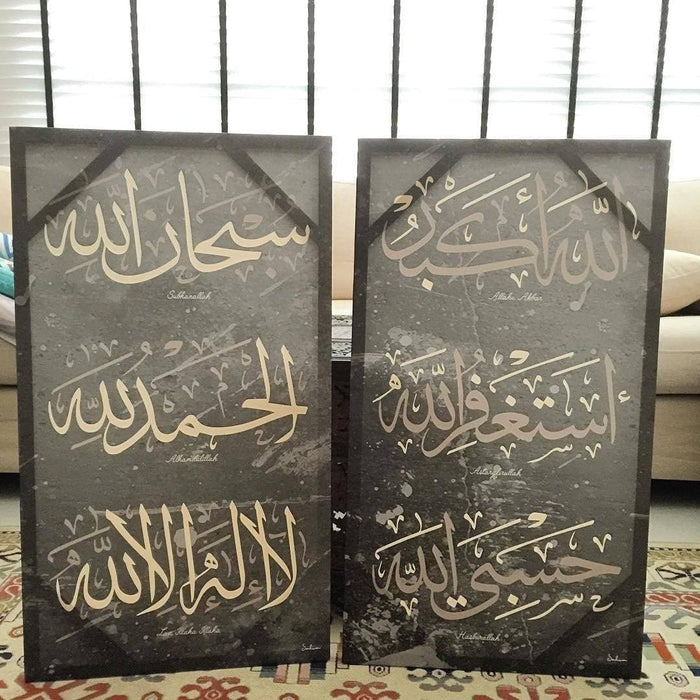 سبحان الله
Subhanallah
الحمد لله
Alhamdulillah
لا إله إلا الله
الله أكبر
Allahu Akbar
أستغفر الله
Astagfirullah
حسبي الله
Hasbirallah